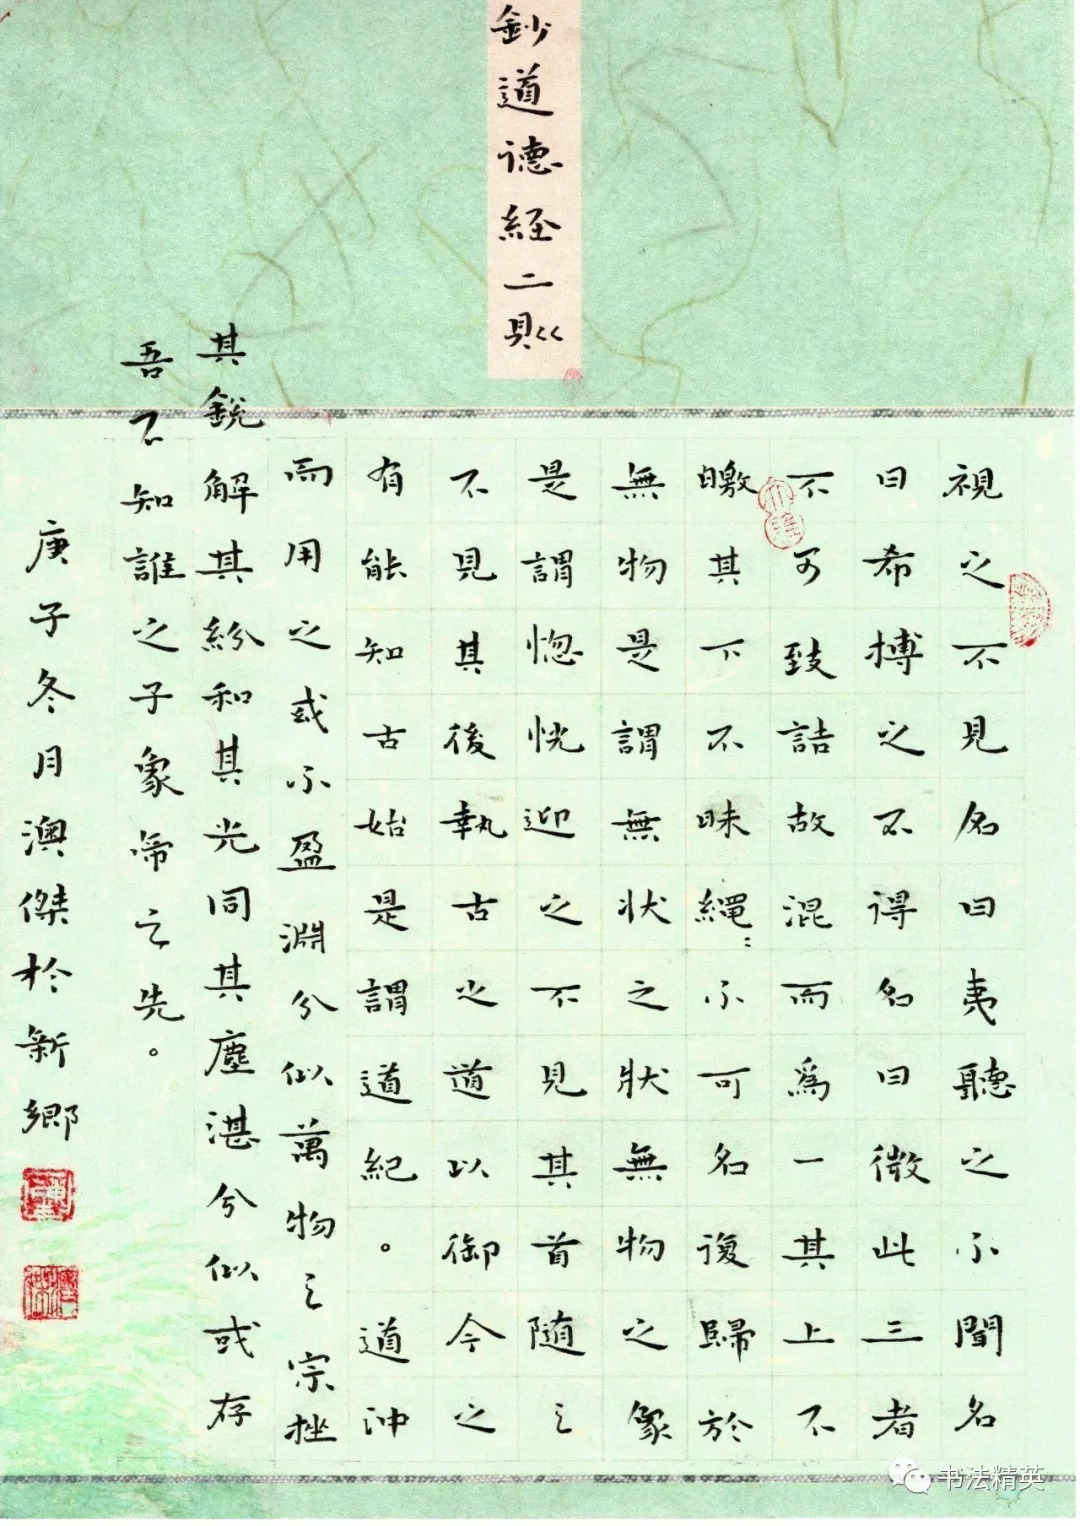 鈔道德經二則
視之不見名曰夷聽之不聞名
曰希搏之不得名曰微此三者
不可致詰故混而為一其上不
曒其下不昧繩〻不可名復歸於
無物是謂無狀之狀無物之象
是謂惚恍迎之不見其首随之
不見其後執古之道以御今之
有能知古始是謂道紀。道沖
而用之或不盈淵兮似萬物之宗挫
其銳解其紛和其光同其塵湛兮似或存
吾不知誰之子象帝之先。
庚子冬月澳傑於新鄉
书法精英